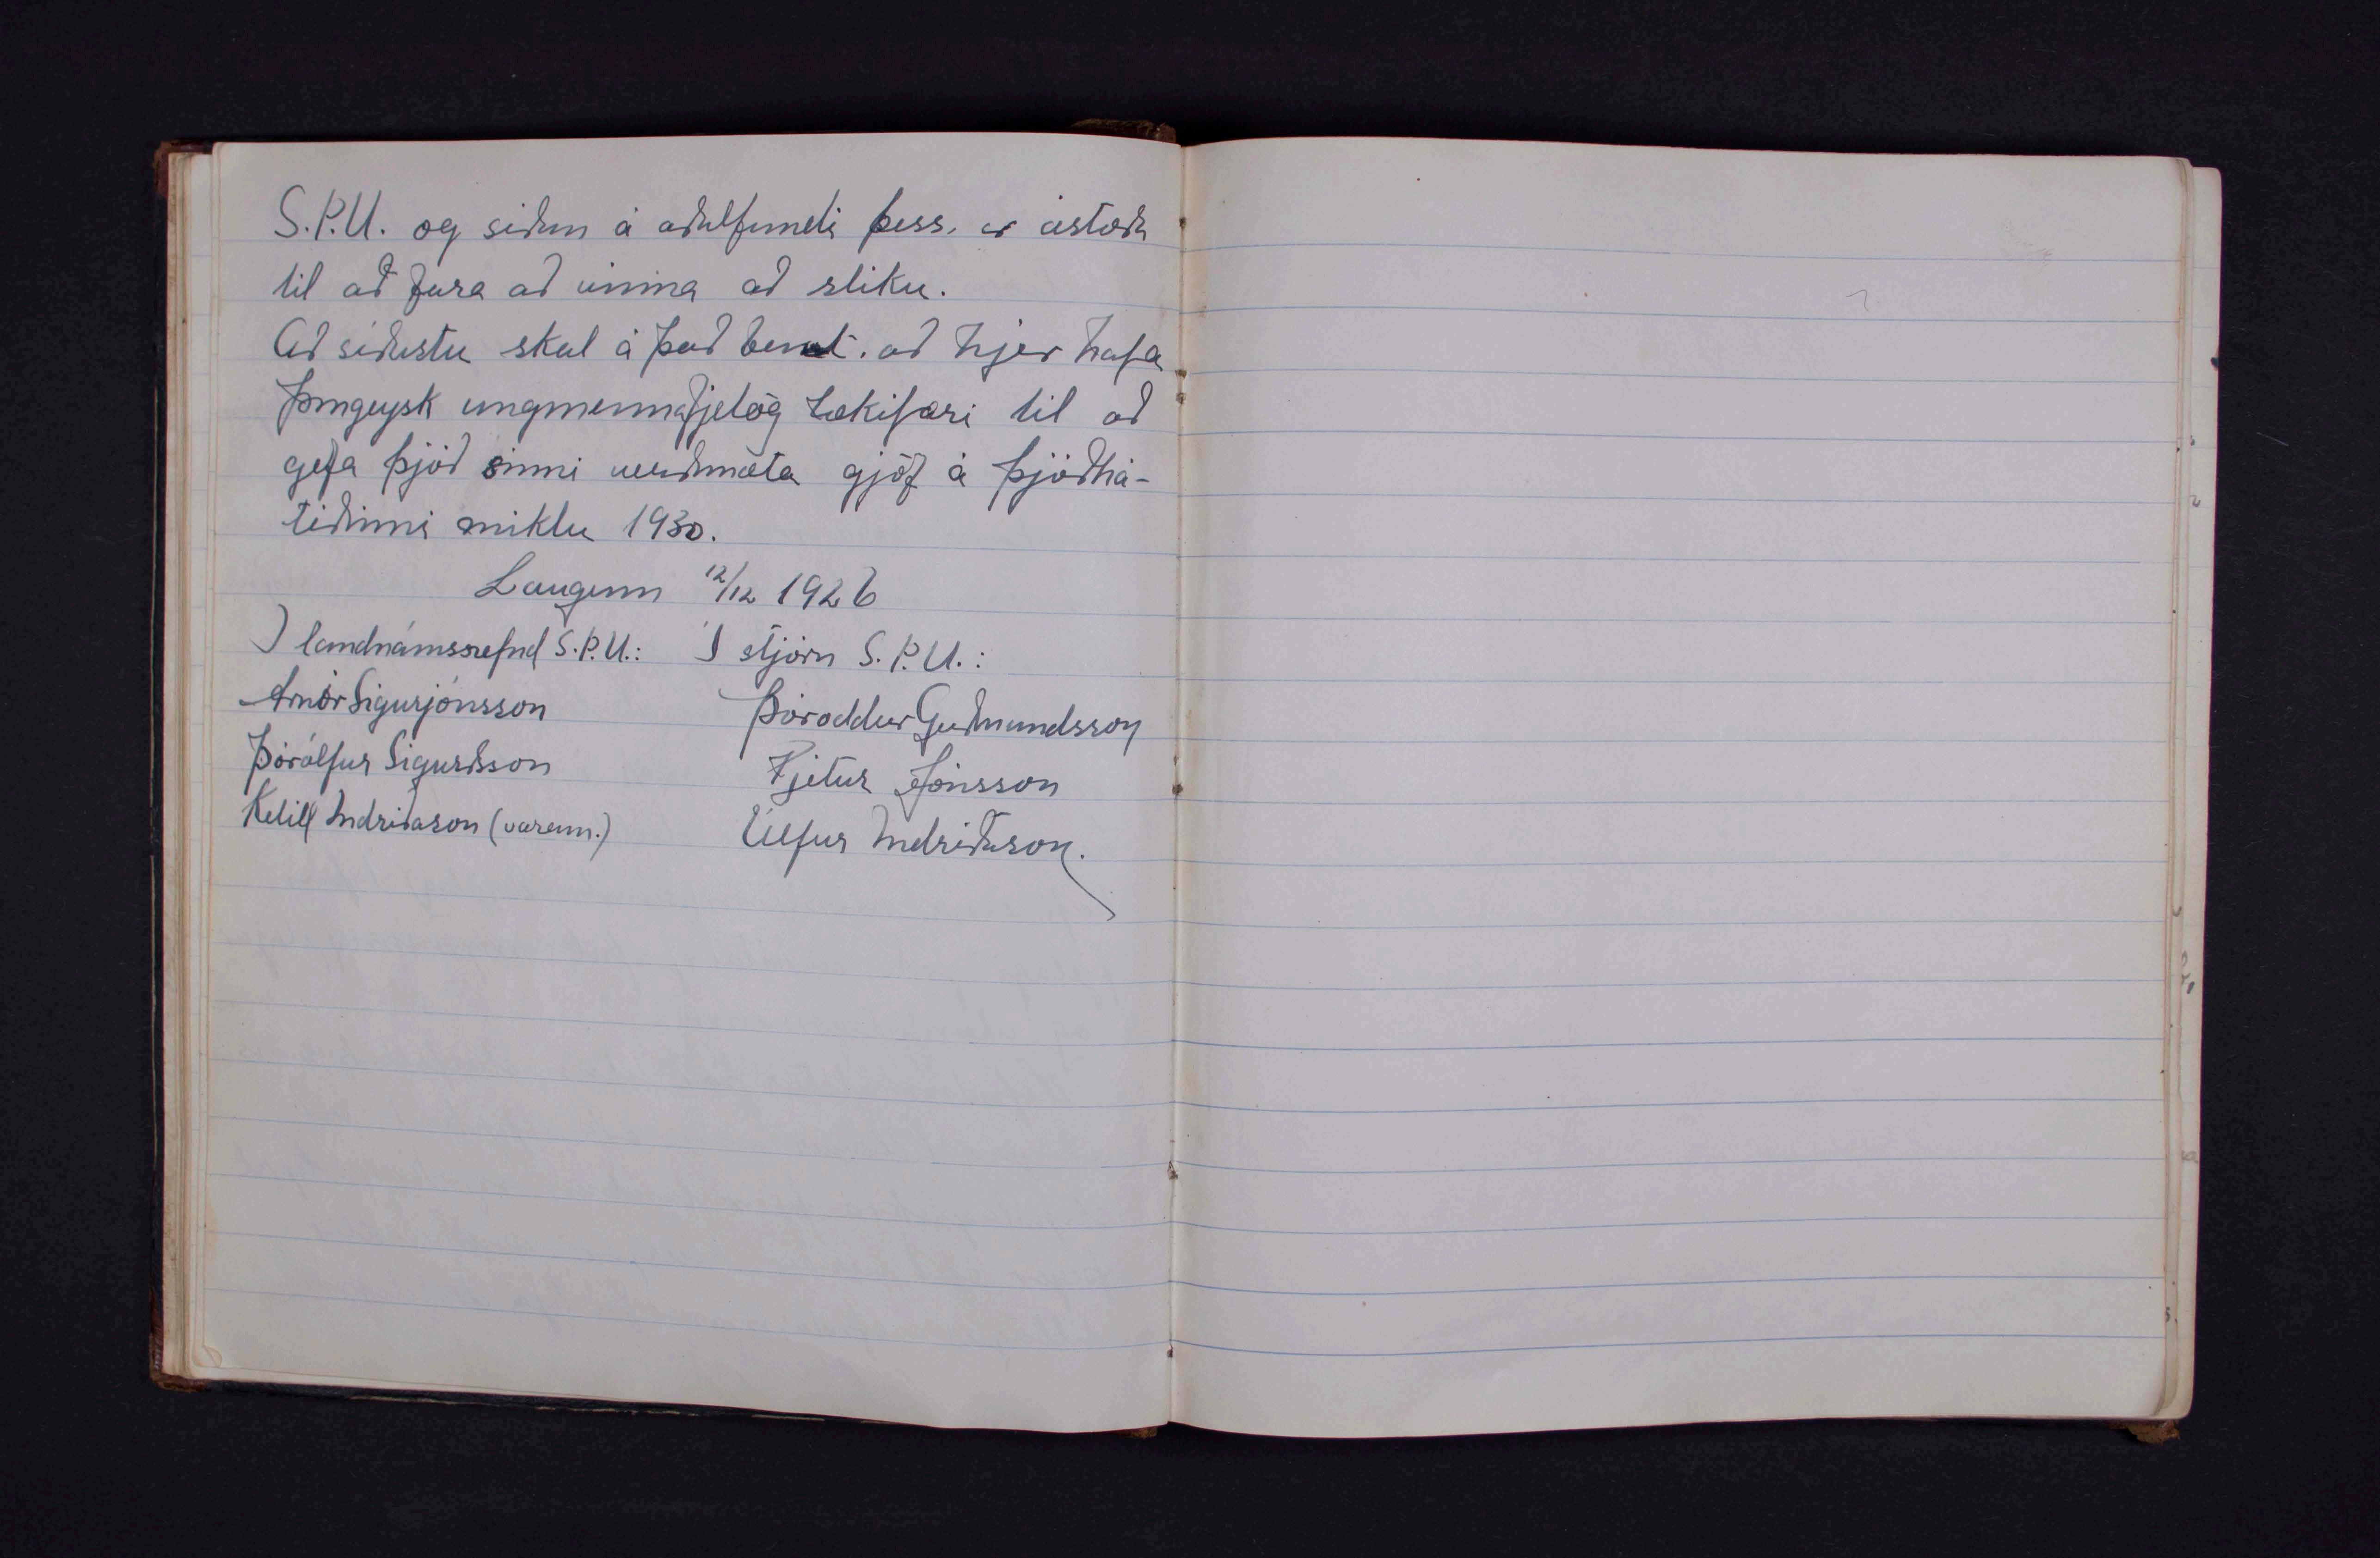 S.Þ.U. og síðan á aðalfundi þess, er ástæða
til að fara að vinna að slíku.
Að síðustu skal á það bent, að hjer hafa
þingeysk ungmennafjelög tækifæri til að
gefa þjóð sinni verðmæta gjöf á þjóðhá-
tíðinni miklu 1930.
Laugum 12/12 1926
Í landnámsnefnd S.Þ.U.: Í stjórn S.Þ.U.:
Arnór Sigurjónsson Þóroddur Guðmundsson
Þórólfur Sigurðsson Pjetur Jónsson
Ketill Indriðason (varam.) Úlfur Indriðason.